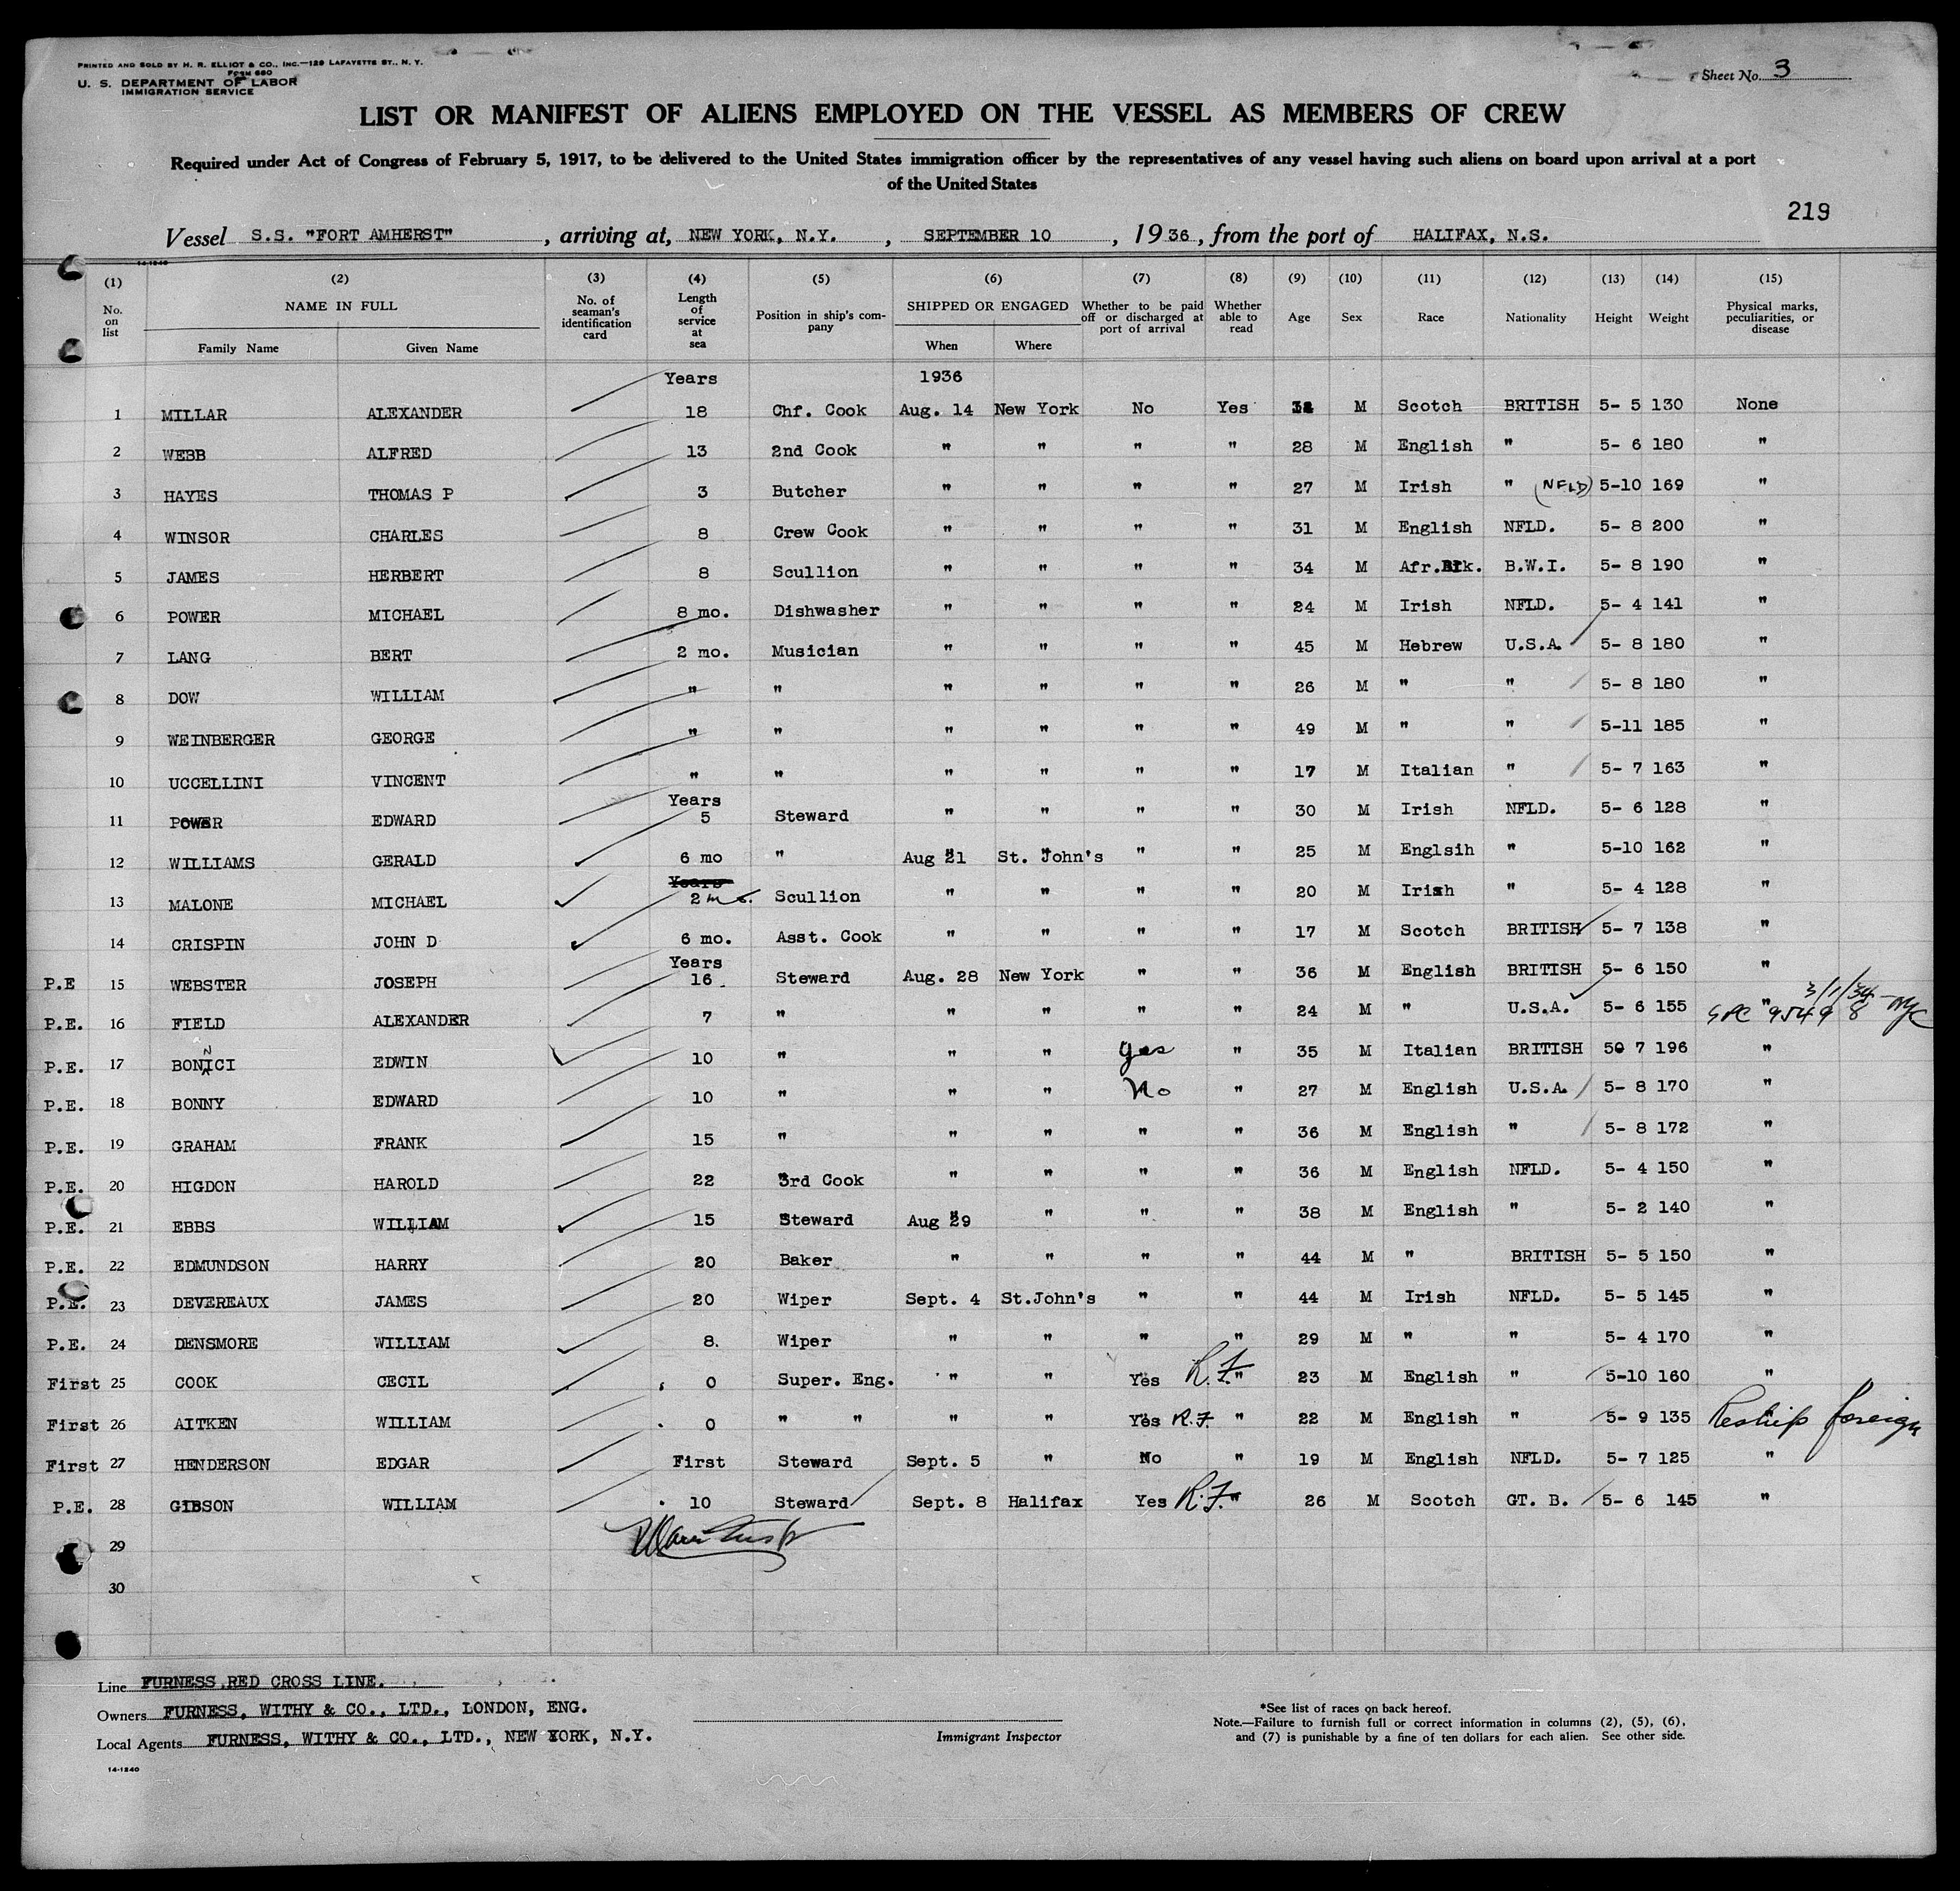 PRINTED AND SOLD BY H. R. ELLIOT & CO., INC.—129 LAFAYETTE ST., N. Y.
FORM 680
U. S. DEPARTMENT OF LABOR
IMMIGRATION SERVICE
Sheet No. 3
LIST OR MANIFEST OF ALIENS EMPLOYED ON THE VESSEL AS MEMBERS OF CREW
Required under Act of Congress of February 5, 1917, to be delivered to the United States immigration officer by the representatives of any vessel having such aliens on board upon arrival at a port
of the United States
219
Vessel S.S. "FORT AMHERST", arriving at, NEW YORK, N.Y., SEPTEMBER 10, 1936, from the port of HALIFAX, N.S.
14-1240
(1) (2) (3) (4) (5) (6) (7) (8) (9) (10) (11) (12) (13) (14) (15)
No. on list NAME IN FULL Family Name Given Name No. of seaman's identification card Length of service at sea Position in ship's company SHIPPED OR ENGAGED When Where Whether to be paid off or discharged at port of arrival Whether able to read Age Sex Race Nationality Height Weight Physical marks, peculiarities, or disease
Years 1936
1 MILLAR ALEXANDER 18 Chf. Cook Aug. 14 New York No Yes M Scotch BRITISH 5- 5 130 None
2 WEBB ALFRED 13 2nd Cook " " " " 28 M English " 5- 6 180 "
3 HAYES THOMAS P 3 Butcher " " " " 27 M Irish " (NFLD) 5-10 169 "
4 WINSOR CHARLES 8 Crew Cook " " " " 31 M English NFLD. 5- 8 200 "
5 JAMES HERBERT 8 Scullion " " " " 34 M Afr.Blk. B.W.I. 5- 8 190 "
6 POWER MICHAEL 8 mo. Dishwasher " " " " 24 M Irish NFLD. 5- 4 141 "
7 LANG BERT 2 mo. Musician " " " " 45 M Hebrew U.S.A. 5- 8 180 "
8 DOW WILLIAM " " " " " " 26 M " " 5- 8 180 "
9 WEINBERGER GEORGE " " " " " " 49 M " " 5-11 185 "
10 UCCELLINI VINCENT " " " " " " 17 M Italian " 5- 7 163 "
Years
11 POWER EDWARD 5 Steward " " " " 30 M Irish NFLD. 5- 6 128 "
12 WILLIAMS GERALD 6 mo " Aug 21 St. John's " " 25 M Englsih " 5-10 162 "
Years
13 MALONE MICHAEL 2 mo. Scullion " " " " 20 M Irish " 5- 4 128 "
14 CRISPIN JOHN D 6 mo. Asst. Cook " " " " 17 M Scotch BRITISH 5- 7 138 "
Years
P.E 15 WEBSTER JOSEPH 16 Steward Aug. 28 New York " " 36 M English BRITISH 5- 6 150 "
3/1/34
P.E. 16 FIELD ALEXANDER 7 " " " " " 24 M " U.S.A. 5- 6 155 "
P.E. 17 BONNICI EDWIN 10 " " " yes " 35 M Italian BRITISH 50 7 196 "
P.E. 18 BONNY EDWARD 10 " " " No " 27 M English U.S.A. 5- 8 170 "
P.E. 19 GRAHAM FRANK 15 " " " " " 36 M English " 5- 8 172 "
P.E. 20 HIGDON HAROLD 22 3rd Cook " " " " 36 M English NFLD. 5- 4 150 "
P.E. 21 EBBS WILLIAM 15 Steward Aug 29 " " " 38 M English " 5- 2 140 "
P.E. 22 EDMUNDSON HARRY 20 Baker " " " " 44 M " BRITISH 5- 5 150 "
P.E. 23 DEVEREAUX JAMES 20 Wiper Sept. 4 St.John's " " 44 M Irish NFLD. 5- 5 145 "
P.E. 24 DENSMORE WILLIAM 8. Wiper " " " " 29 M " " 5- 4 170 "
First 25 COOK CECIL 0 Super. Eng. " " Yes R.F. " 23 M English " 5-10 160 "
First 26 AITKEN WILLIAM 0 " " " " Yes R.F. " 22 M English " 5- 9 135 Reship foreign
First 27 HENDERSON EDGAR First Steward Sept. 5 " No " 19 M English NFLD. 5- 7 125 "
P.E. 28 GIBSON WILLIAM 10 Steward Sept. 8 Halifax Yes R.F. " 26 M Scotch GT. B. 5- 6 145 "
29
30
Line FURNESS RED CROSS LINE.
Owners FURNESS, WITHY & CO., LTD., LONDON, ENG.
Local Agents FURNESS, WITHY & CO., LTD., NEW YORK, N.Y.
Immigrant Inspector
*See list of races on back hereof.
Note.—Failure to furnish full or correct information in columns (2), (5), (6),
and (7) is punishable by a fine of ten dollars for each alien. See other side.
14-1240